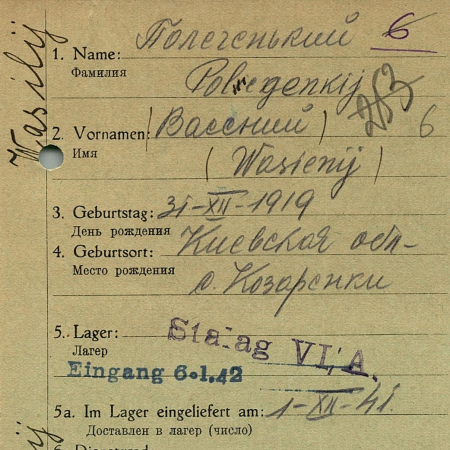 Wasilij
6
1. Name: Полегенький
Фамилия
263
2. Vornamen: (Вассний) 6
Имя (Wasienij)
3. Geburtstag: 31-XII-1919
День рождения
4. Geburtsort: Киевская обл-
Место рождения с. Козаренки
5. Lager: Stalag VI/A.
Лагер
Eingang 6.1.42
5a. Im Lager eingeliefert am: 1-XII-41.
Доставлен в лагер (число)